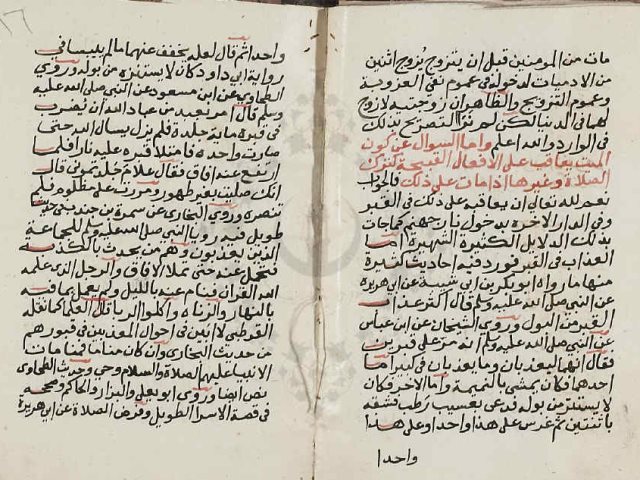 مات من المومنين قبل ان يتزوج يزوج اثنين
من الادميات لدخوله في عموم نفى العزوبة
وعموم التزويج والظاهر ان زوجته لازوج
لها في الدنيا لكن لم نر التصريح بذلك
في الوارد والله اعلم واما السوال عن كون
الميت يعاقب على الافعال القبيحة كترك
الصلاة وغيرها اذا مات على ذلك فالجواب
نعم لله تعالى ان يعاقبه على ذلك في القبر
وفي الدار الاخرة بدخول نار جهنم كما جات
بذلك الدلايل الكثيرة الشهيرة اما
العذاب في القبر فورد فيه احاديث كثيرة
منها ما رواه ابو بكر بن ابي شيبة عن ابي هريرة
عن النبي صلى الله عليه وسلم قال اكثر عذاب
القبر من البول وروى الشيخان عن ابن عباس
عن النبي صلى الله عليه وسلم انه مر على قبرين
فقال انهما ليعذبان وما يعذبان في كبير اما
احدهما فكان يمشي بالنميمة واما الاخر فكان
لا يستتر من بوله فدعى بعسيب رطب فشقه
باثنتين ثم غرس على هذا واحدا وعلى هذا
واحدا
واحدا ثم قال لعله يخفف عنهما ما لم ييبسا في
رواية ابي داود كان لا يستنزه من بوله وروى
الطحاوي عن ابن مسعود عن النبي صلى الله عليه
وسلم قال امر بعبد من عباد الله ان يضرب
في قبره ماية جلدة فلم يزل يسال الله حتى
صارت واحدة فامتلا قبره عليه نارا فلما
ارتفع عنه افاق فقال علام جلدتموني قال
انك صليت بغير طهور ومررت على مظلوم فلم
تنصره وروى البخاري عن سمرة بن جندب
طويل فيه رويا النبي صلى الله عليه وسلم للجماعة
الذين يعذبون وهم من يحدث بالكذبة
فتحمل عنه حتى تملا الافاق والرجل الذي علمه
الله القران فينام عنه بالليل ولم يعمل بما فيه
بالنهار والزناة واكلوا الربا قال العلما كما نقله
القرطبي لا ابين في احوال المعذبين في قبورهم
من حديث البخاري وان كان مناما فمنامات
الانبيا عليهم الصلاة والسلام وحى وحديث الطحاوي
نص ايضا وروى ابو يعلى والبزار والحاكم وصححه
في قصة الاسرا الطويل وفرض الصلاة عن ابي هريرة